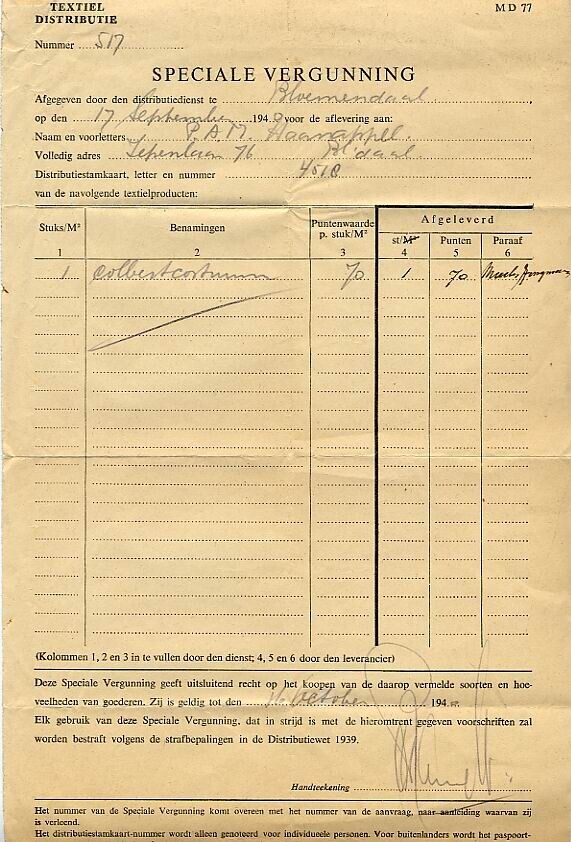 TEXTIEL
DISTRIBUTIE
M D 77
Nummer 517
SPECIALE VERGUNNING
Afgegeven door den distributiedienst te Bloemendaal,
op den 17 September 1940 voor de aflevering aan:
Naam en voorletters P. A. M. Haanappel.
Volledig adres Iepenlaan 76 Bl'daal.
Distributiestamkaart, letter en nummer 4518
van de navolgende textielproducten:
Stuks/M² Benamingen Puntenwaarde p. stuk/M² Afgeleverd
st/M² Punten Paraaf
1 2 3 4 5 6
1 colbertcostuum 70 1 70
(Kolommen 1, 2 en 3 in te vullen door den dienst; 4, 5 en 6 door den leverancier)
Deze Speciale Vergunning geeft uitsluitend recht op het koopen van de daarop vermelde soorten en hoe-
veelheden van goederen. Zij is geldig tot den October 194
Elk gebruik van deze Speciale Vergunning, dat in strijd is met de hieromtrent gegeven voorschriften zal
worden bestraft volgens de strafbepalingen in de Distributiewet 1939.
Handteekening
Het nummer van de Speciale Vergunning komt overeen met het nummer van de aanvraag, naar aanleiding waarvan zij
is verleend.
Het distributiestamkaart-nummer wordt alleen genoteerd voor individueele personen. Voor buitenlanders wordt het paspoort-